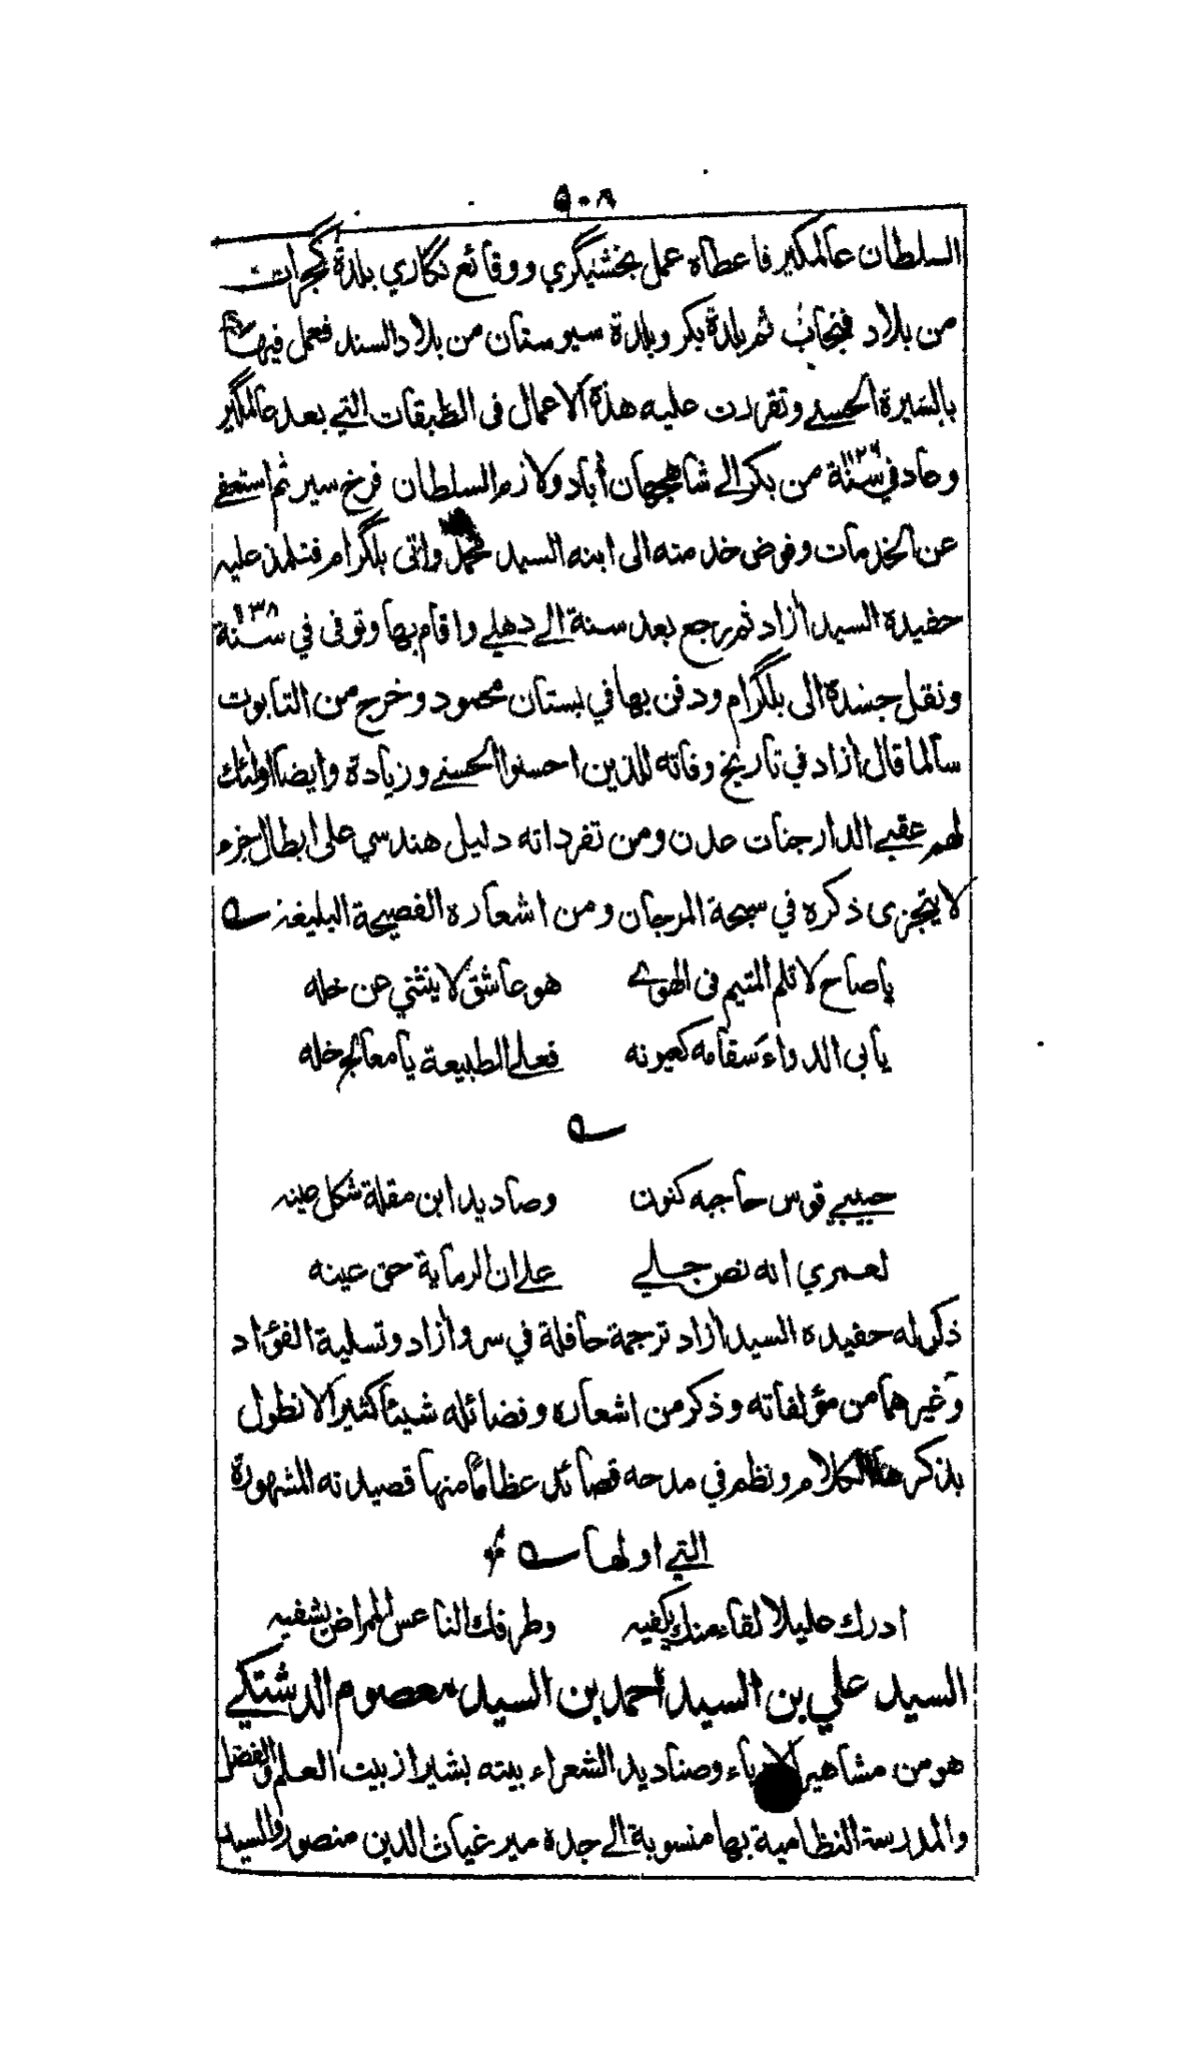 ٩٠٨
السلطان عالمكير فاعطاه عمل بخشيگري ووقائع نگاري بلدة گجرات
من بلاد فنجاب ثم بلدة بكر وبلدة سيوستان من بلاد السند فعمل فيها
بالسيرة الحسنے وتقررت عليه هذه الاعمال فى الطبقات التے بعد عالمگير
وعاد في سنة ١١٢٦ من بكر الے شاهجهان أباد ولازم السلطان فرخ سير ثم استعفے
عن الخدمات وفوض خدمته الى ابنه السيد محمد واتى بلگرام فتلمذ عليه
حفيده السيد أزاد ثم رجع بعد سنة الے دهلے واقام بها وتوفى في سنة ١١٣٨
ونقل جسده الى بلگرام ودفن بها في بستان محمود وخرج من التابوت
سالما قال أزاد في تاريخ وفاته للذين احسنوا الحسنے وزيادة وايضا اولئك
لهم عقبے الدار جنات عدن ومن تفرداته دليل هندسي على ابطال جزء
لا يتجزى ذكره في سبحة المرجان ومن اشعاره الفصيحة البليغة ـه
ياصاح لا تلم المتيم فى الهوے هو عاشق لا ينثني عن خله
يابى الدواء سقامه كعيونه فعلے الطبيعة يا معالج خله
ـه
حبيبے قوس حاجبه كنون وصاد يد ابن مقلة شكل عينه
لعمري انه نص جلے علے ان الرماية حق عينه
ذكر له حفيده السيد أزاد ترجمة حافلة في سرو أزاد وتسلية الفؤاد
وغيرهما من مؤلفاته وذكر من اشعاره وفضائله شيئا كثيرا لا نطول
بذكرها الكلام ونظم في مدحه قصائد عظاما منها قصيدته المشهورة
التے اولها ـه
ادرك عليلا لقاء منك يكفيه وطرفك الناعس الممراض يشفيه
السيد علي بن السيد أحمد بن السيد معصوم الدشتكے
هو من مشاهير الادباء وصناديد الشعراء بيته بشيراز بيت العلم والفضل
والمدرسة النظامية بها منسوبة الے جده مير غياث الدين منصور والسيد